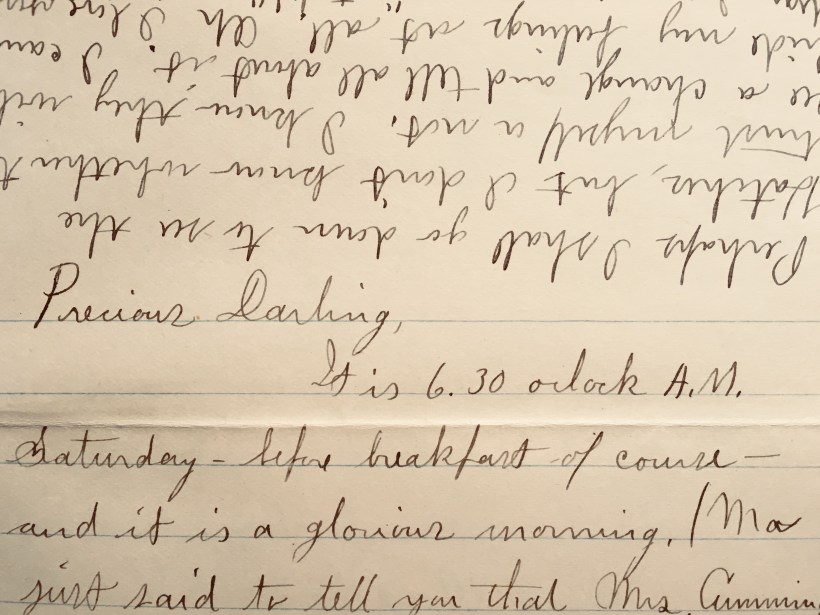 Precious Darling,
It is 6.30 oclock A.M.
Saturday - before breakfast of course -
and it is a glorious morning. (Ma
just said to tell you that Mrs. Cummin
Perhaps I shall go down to see the
but I don't know whether t
trust myself or not. I know they will
see a change and tell all about it. I can
hide my feelings at all. Oh I love